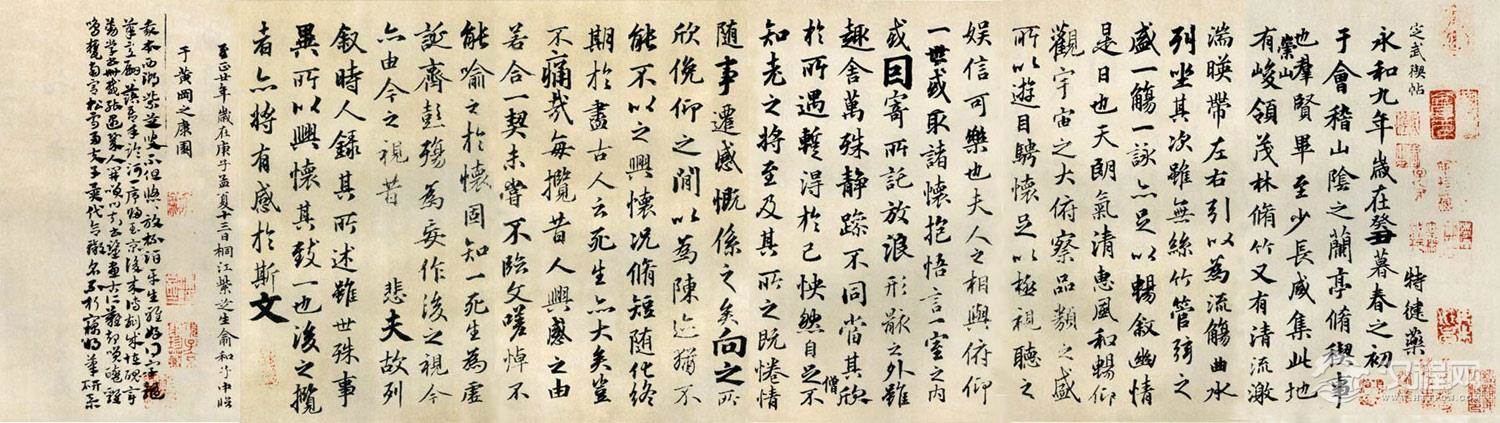 定武禊帖
特健藥
永和九年歲在癸丑暮春之初
于會稽山陰之蘭亭脩稧事
也羣賢畢至少長咸集此地
有崇山峻領茂林脩竹又有清流激
湍暎帶左右引以為流觴曲水
列坐其次雖無絲竹管弦之
盛一觴一詠亦足以暢叙幽情
是日也天朗氣清惠風和暢仰
觀宇宙之大俯察品類之盛
所以遊目騁懷足以極視聽之
娛信可樂也夫人之相與俯仰
一世或取諸懷抱悟言一室之內
或因寄所託放浪形骸之外雖
趣舍萬殊静躁不同當其欣
於所遇蹔得於己怏然自足不
僧
知老之將至及其所之既惓情
随事遷感慨係之矣向之所
欣俛仰之閒以為陳迹猶不
能不以之興懷況脩短随化終
期於盡古人云死生亦大矣豈
不痛哉每攬昔人興感之由
若合一契未嘗不臨文嗟悼不
能喻之於懷固知一死生為虛
誕齊彭殤為妄作後之視今
亦由今之視昔 悲夫故列
叙時人錄其所述雖世殊事
異所以興懷其致一也後之攬
者亦將有感於斯文
至正廿年歲在庚子孟夏十三日桐江紫芝生俞和子中臨
于黃岡之康園